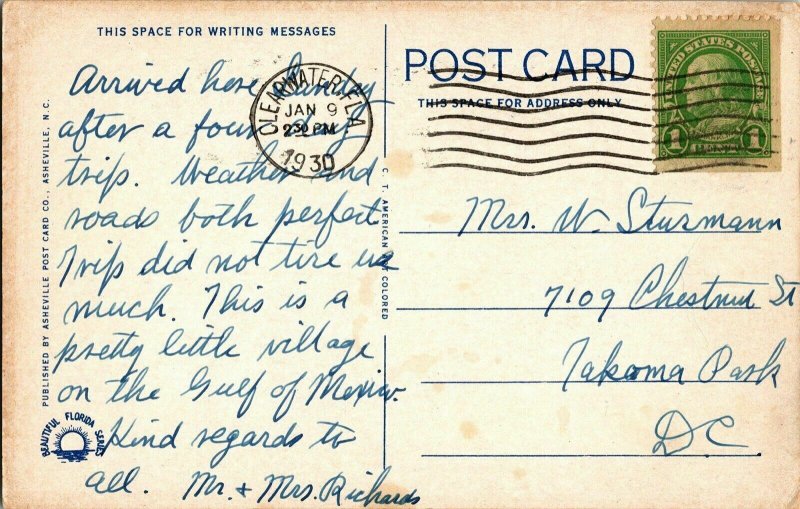 THIS SPACE FOR WRITING MESSAGES
Arrived here Sunday
after a four day
trip. Weather and
roads both perfect.
Trip did not tire us
much. This is a
pretty little village
on the Gulf of Mexico.
Kind regards to
all. Mr. & Mrs. Richards
PUBLISHED BY ASHEVILLE POST CARD CO., ASHEVILLE, N. C.
BEAUTIFUL FLORIDA SERIES
C. T. AMERICAN ART COLORED
CLEARWATER, FLA
JAN 9
230 PM
1930
POST CARD
THIS SPACE FOR ADDRESS ONLY
UNITED STATES POSTAGE
1 1
Mrs. W Sturmann
7109 Chestnut St
Takoma Park
DC